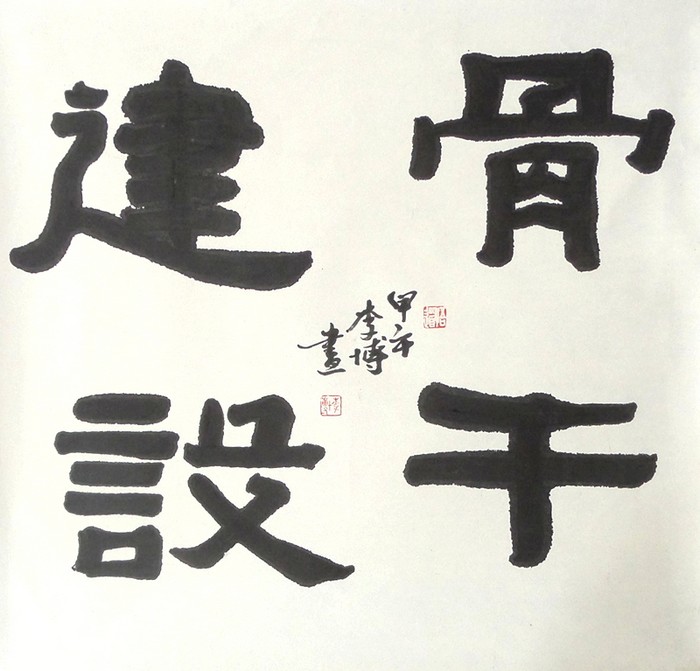 骨干
建設
甲午
李博
書